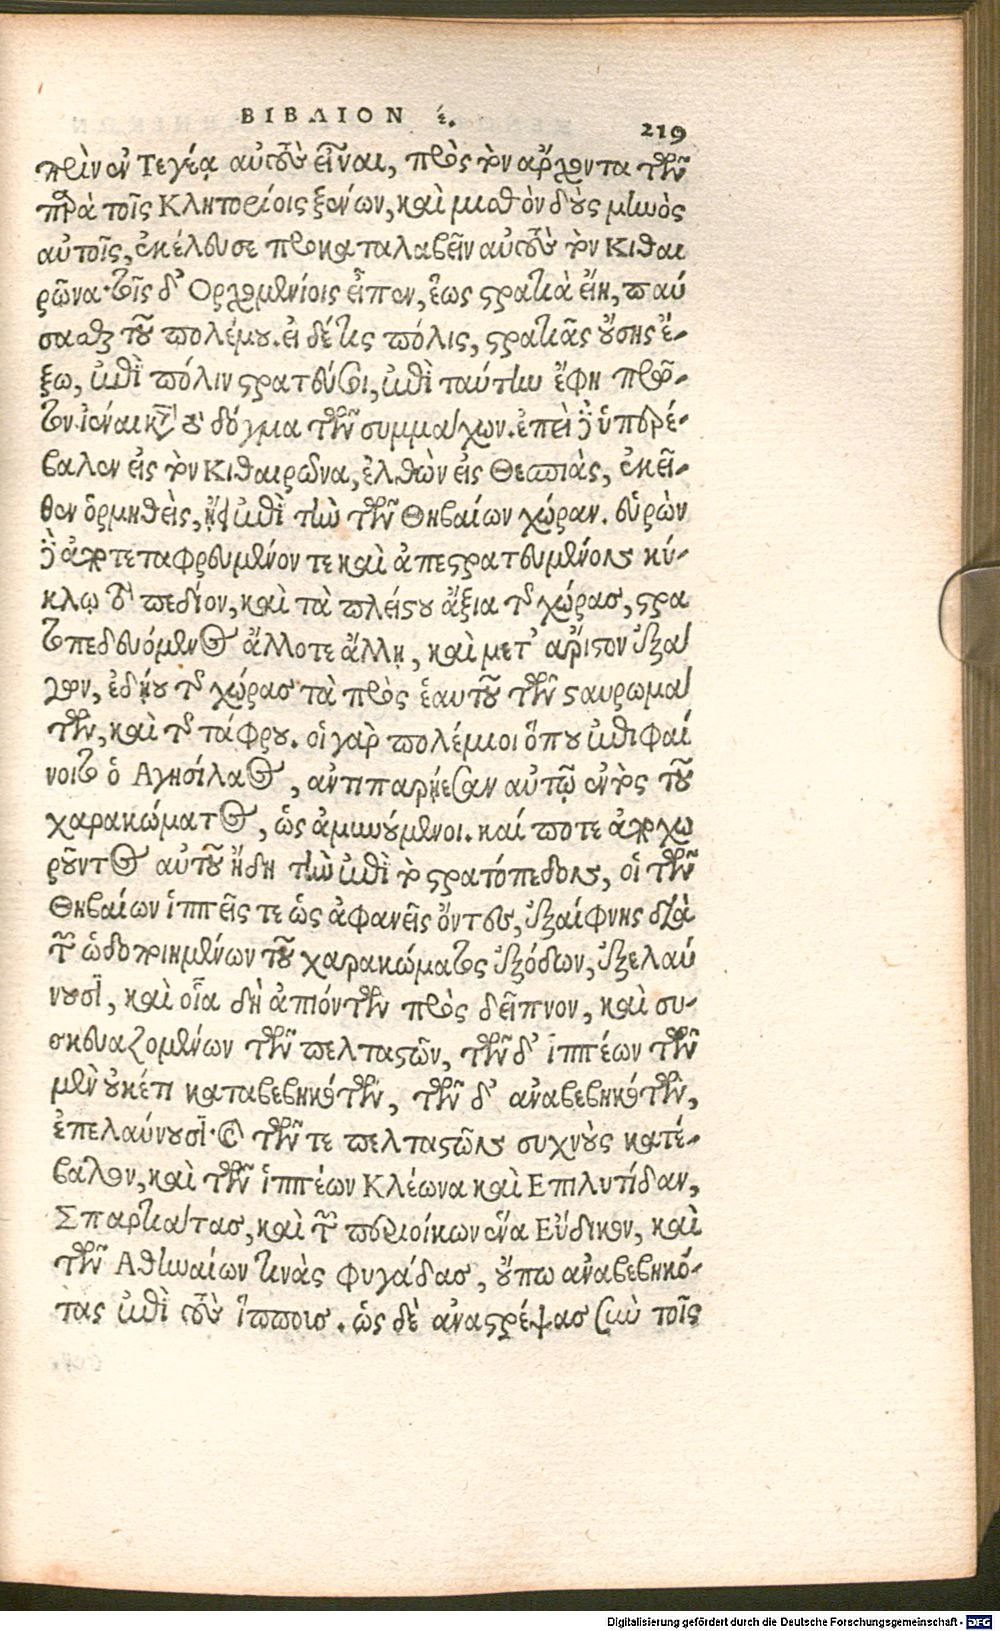 ΒΙΒΛΙΟΝ έ.
219
πρὶν ἐν Τεγέᾳ αὐτοὺς εἶναι, πρὸς τὸν ἄρχοντα τῶν
παρὰ τοῖς Κλητορίοις ξένων, καὶ μισθὸν δοὺς μηνὸς
αὐτοῖς, ἐκέλευσε προκαταλαβεῖν αὐτοὺς τὸν Κιθαι
ρῶνα· τοῖς δ' Ορχομενίοις εἶπεν, ἕως στρατιὰ εἴη, παύ
σασθαι τοῦ πολέμου. εἰ δέ τις πόλις, στρατιᾶς οὔσης ἔ-
ξω, ἐπὶ πόλιν στρατεύσοι, ἐπὶ ταύτην ἔφη πρῶ-
τον ἰέναι κατὰ τὸ δόγμα τῶν συμμάχων. ἐπεὶ δὲ ὑπερέ-
βαλεν εἰς τὸν Κιθαιρῶνα, ἐλθὼν εἰς Θεσπιὰς, ἐκεῖ-
θεν ὁρμηθεὶς, ᾔει ἐπὶ τὴν τῶν Θηβαίων χώραν. εὑρὼν
δὲ ἀποτεταφρευμένον τε καὶ ἀπεστρατευμένον κύ-
κλῳ τὸ πεδίον, καὶ τὰ πλείστου ἄξια τῆς χώρας, στρα
τοπεδευόμενος ἄλλοτε ἄλλῃ, καὶ μετ' ἄριστον ἐξά
γων, ἐδῄου τῆς χώρας τὰ πρὸς ἑαυτοῦ τῶν σταυρωμά
των, καὶ τῆς τάφρου. οἱ γὰρ πολέμιοι ὅπου ἐπιφαί
νοιτο ὁ Αγησίλαος, ἀντιπαρῄεσαν αὐτῷ ἐντὸς τοῦ
χαρακώματος, ὡς ἀμυνούμενοι. καί ποτε ἀποχω
ροῦντος αὐτοῦ ἤδη τὴν ἐπὶ τὸ στρατόπεδον, οἱ τῶν
Θηβαίων ἱππεῖς τε ὡς ἀφανεῖς ὄντες, ἐξαίφνης διὰ
τῶν ὡδοποιημένων τοῦ χαρακώματος ἐξόδων, ἐξελαύ
νουσι, καὶ οἷα δὴ ἀπιόντων πρὸς δεῖπνον, καὶ συ-
σκευαζομένων τῶν πελταστῶν, τῶν δ' ἱππέων τῶν
μὲν οὐκέτι καταβεβηκότων, τῶν δ' ἀναβεβηκότων,
ἐπελαύνουσι· καὶ τῶν τε πελταστῶν συχνοὺς κατέ-
βαλον, καὶ τῶν ἱππέων Κλέωνα καὶ Επιλυτίδαν,
Σπαρτιάτας, καὶ τῶν περιοίκων ἕνα Εὔδικον, καὶ
τῶν Αθηναίων τινὰς φυγάδας, οὔπω ἀναβεβηκό-
τας ἐπὶ τοὺς ἵππους. ὡς δὲ ἀναστρέψας σὺν τοῖς
Digitalisierung gefördert durch die Deutsche Forschungsgemeinschaft - DFG